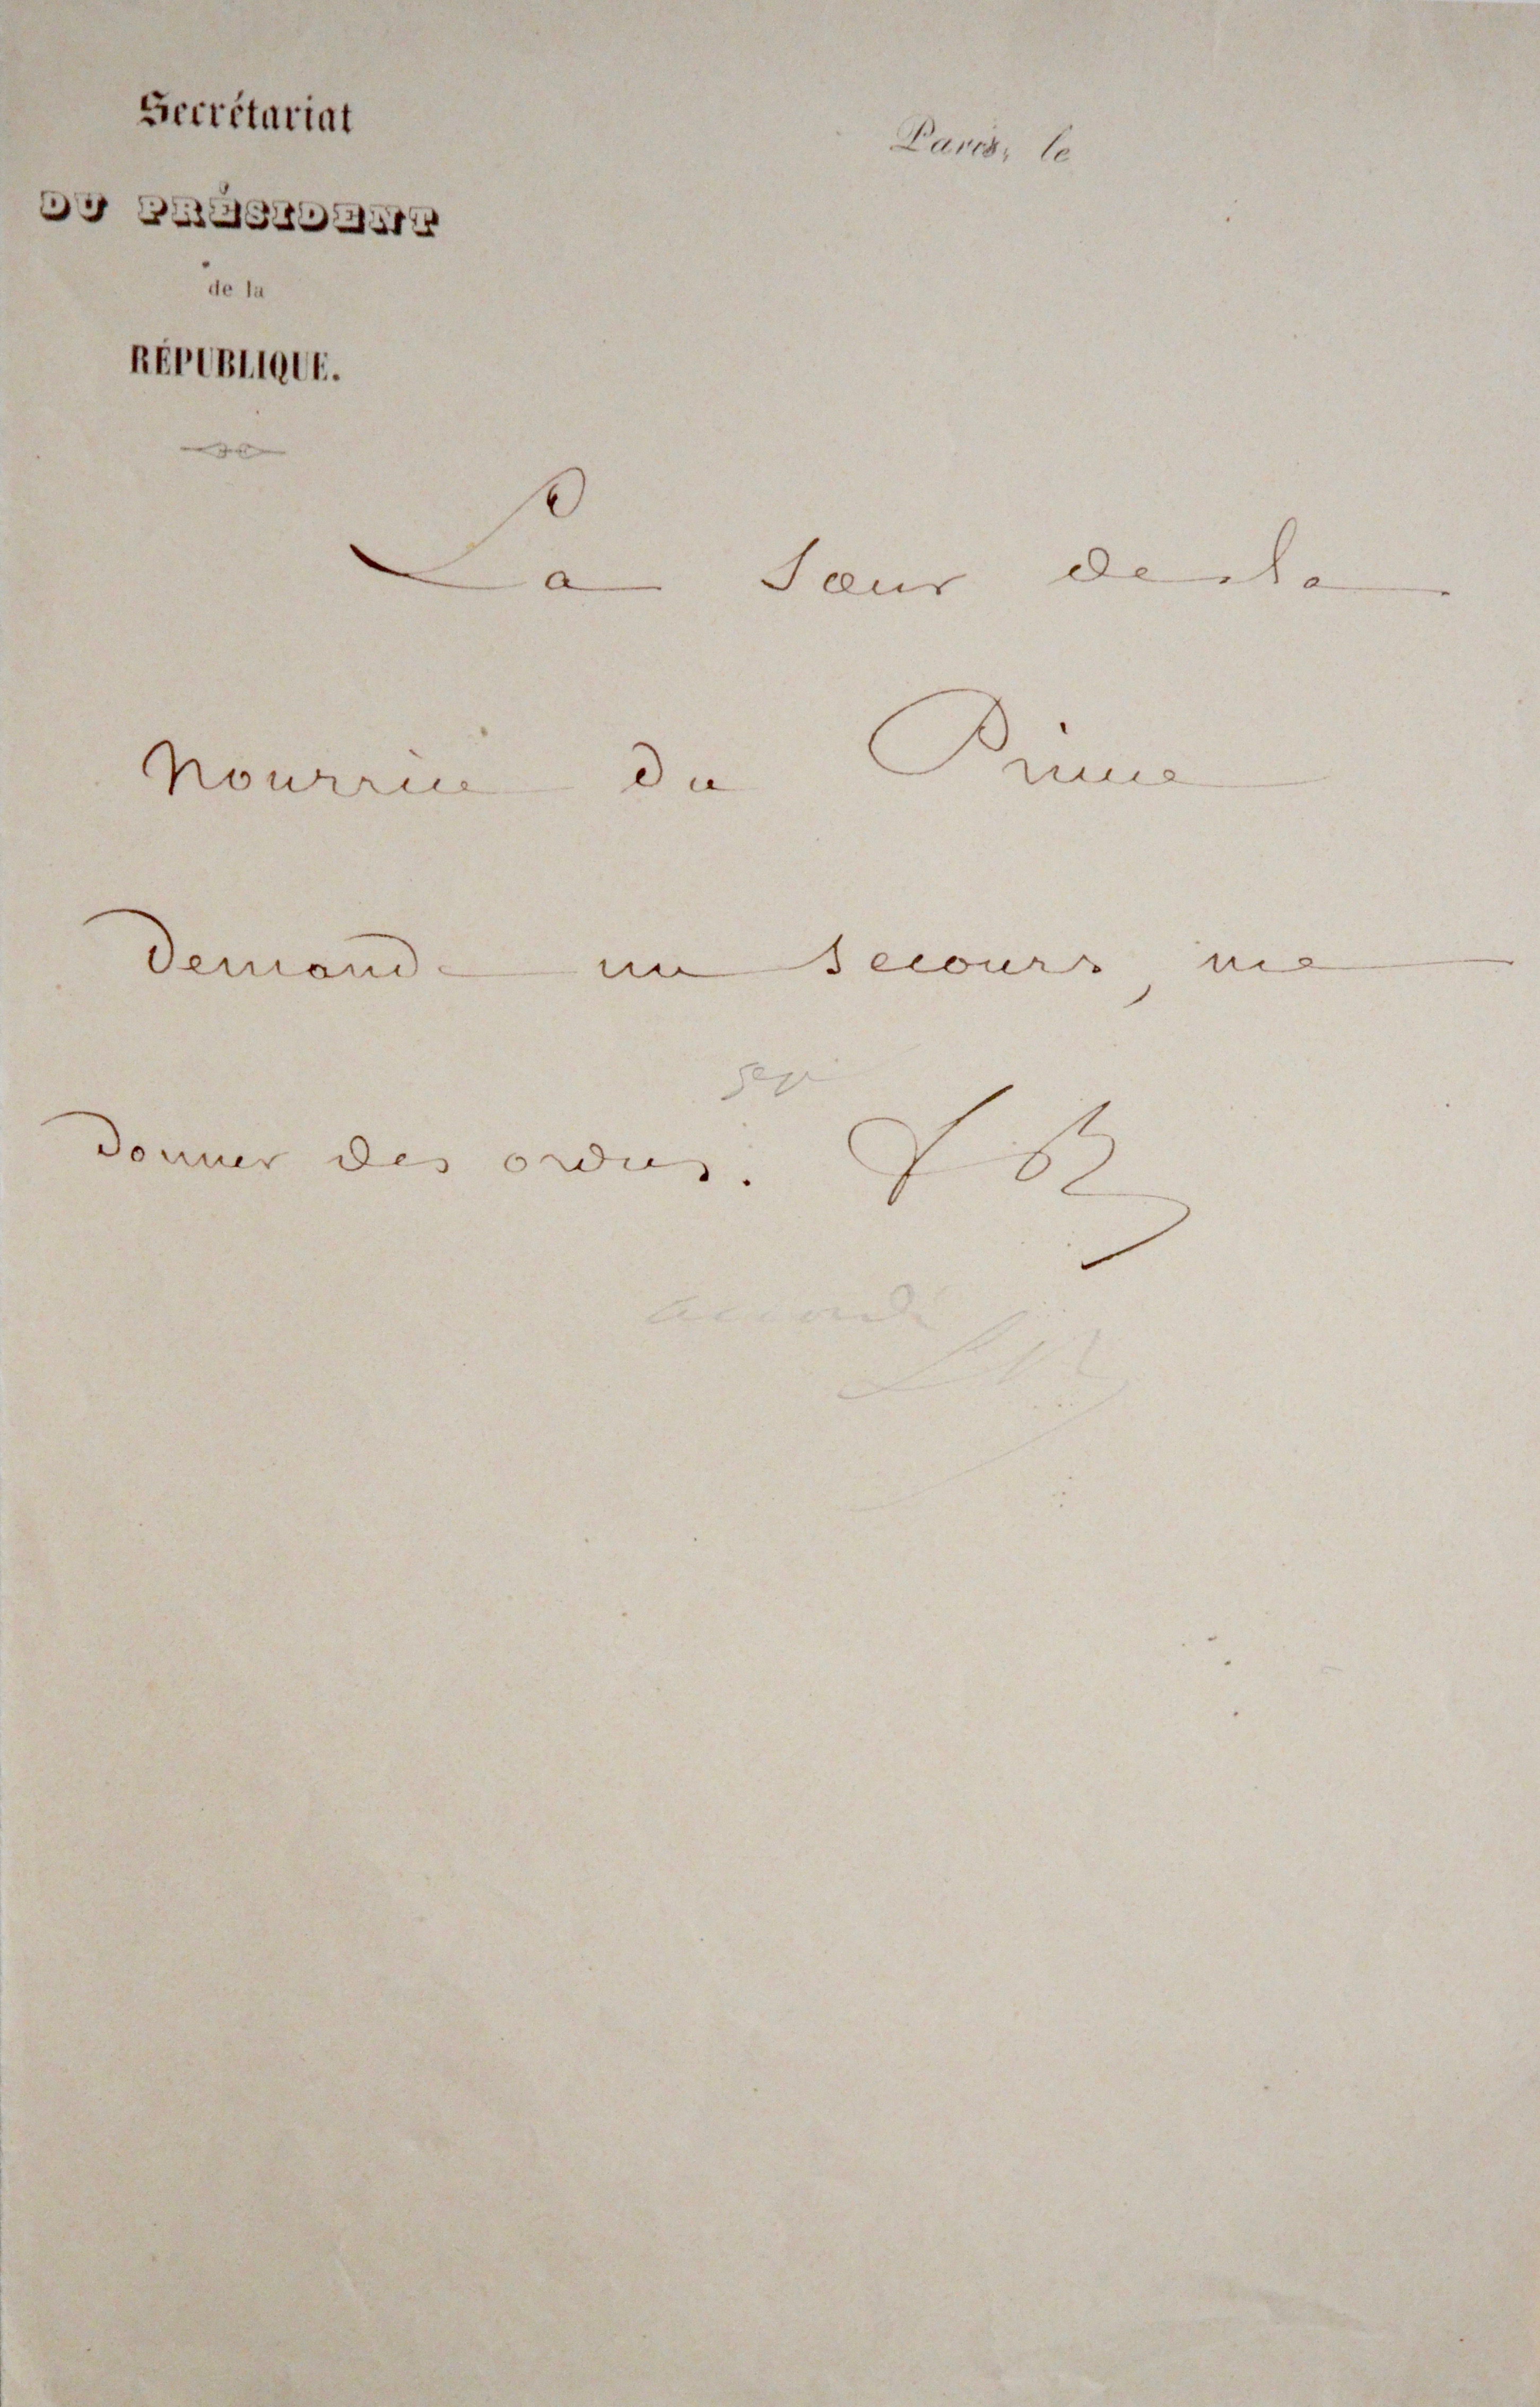 Secrétariat
DU PRÉSIDENT
de la
RÉPUBLIQUE.
Paris, le
La sœur de la
nourrice du Prince
demande un secours, me
donner des ordres. LB
accordé
LN